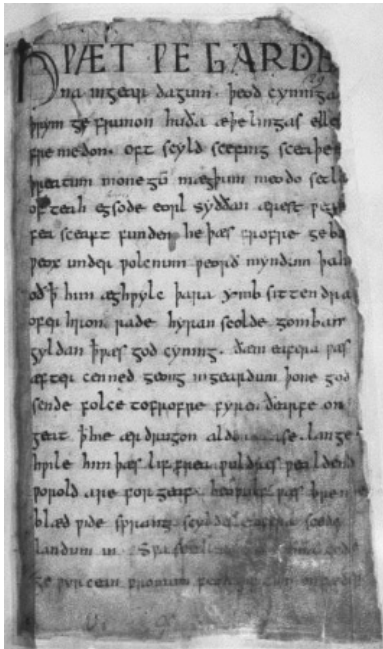 HǷÆT ǷE GARDE
na in gear dagum . þeod cyninga
þrym ge frunon huða æþelingas elle
fre medon . oft scyld scefing sceaþe
þreatum monegū mægþum meodo setla
of teah egsode eorl syððan ærest ƿear
fea sceaft funden he þæs frofre geba
ƿeox under ƿolcnum ƿeorð myndum þah
oð ꝥ him æghƿylc þara ymb sittendra
ofer hron rade hyran scolde gomban
gyldan ꝥ ƿæs god cyning . ðæm eafera ƿæs
æfter cenned geong in geardum þone god
sende folce tofrofre fyren ðearfe on
geat ꝥ hie ær drugon aldor ase . lange
hƿile him þæs lif frea ƿuldres ƿealdend
ƿorold are for geaf . beoƿulf ƿæs breme
blæd ƿide sprang scyldes eafera scede
landum in . Sƿa guma gode
ge ƿyrcean fromum